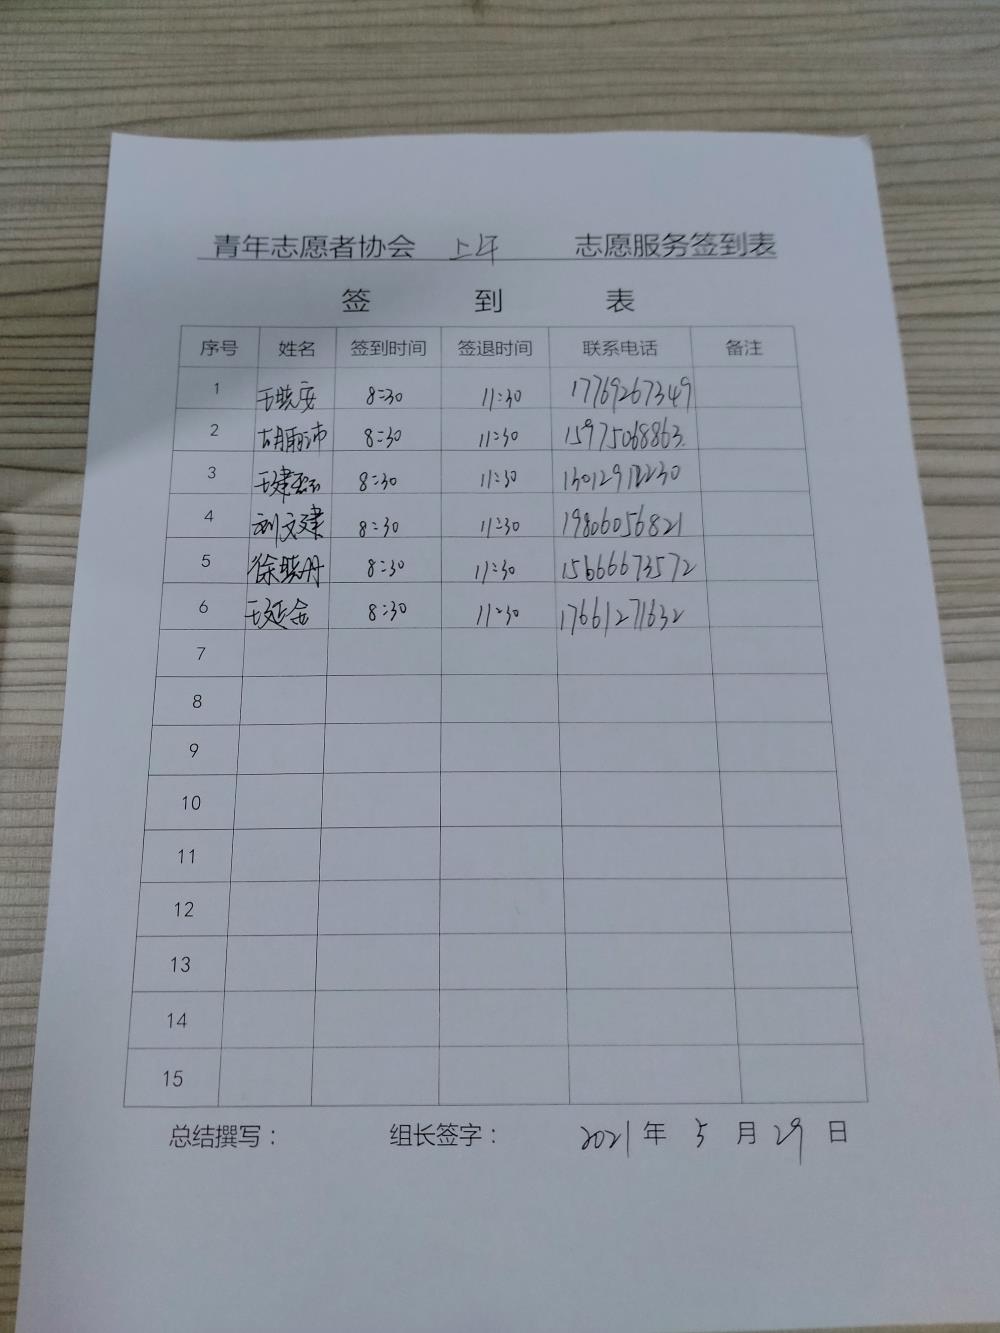 青年志愿者协会 上午 志愿服务签到表
签 到 表
序号 姓名 签到时间 签退时间 联系电话 备注
1 王晓安 8:30 11:30 17769267349
2 胡丽沛 8:30 11:30 15975068863
3 8:30 11:30
4 刘文建 8:30 11:30 19806056821
5 徐晓丹 8:30 11:30 15666673572
6 王延金 8:30 11:30 17661271632
7
8
9
10
11
12
13
14
15
总结撰写： 组长签字： 2021 年 5 月 29 日